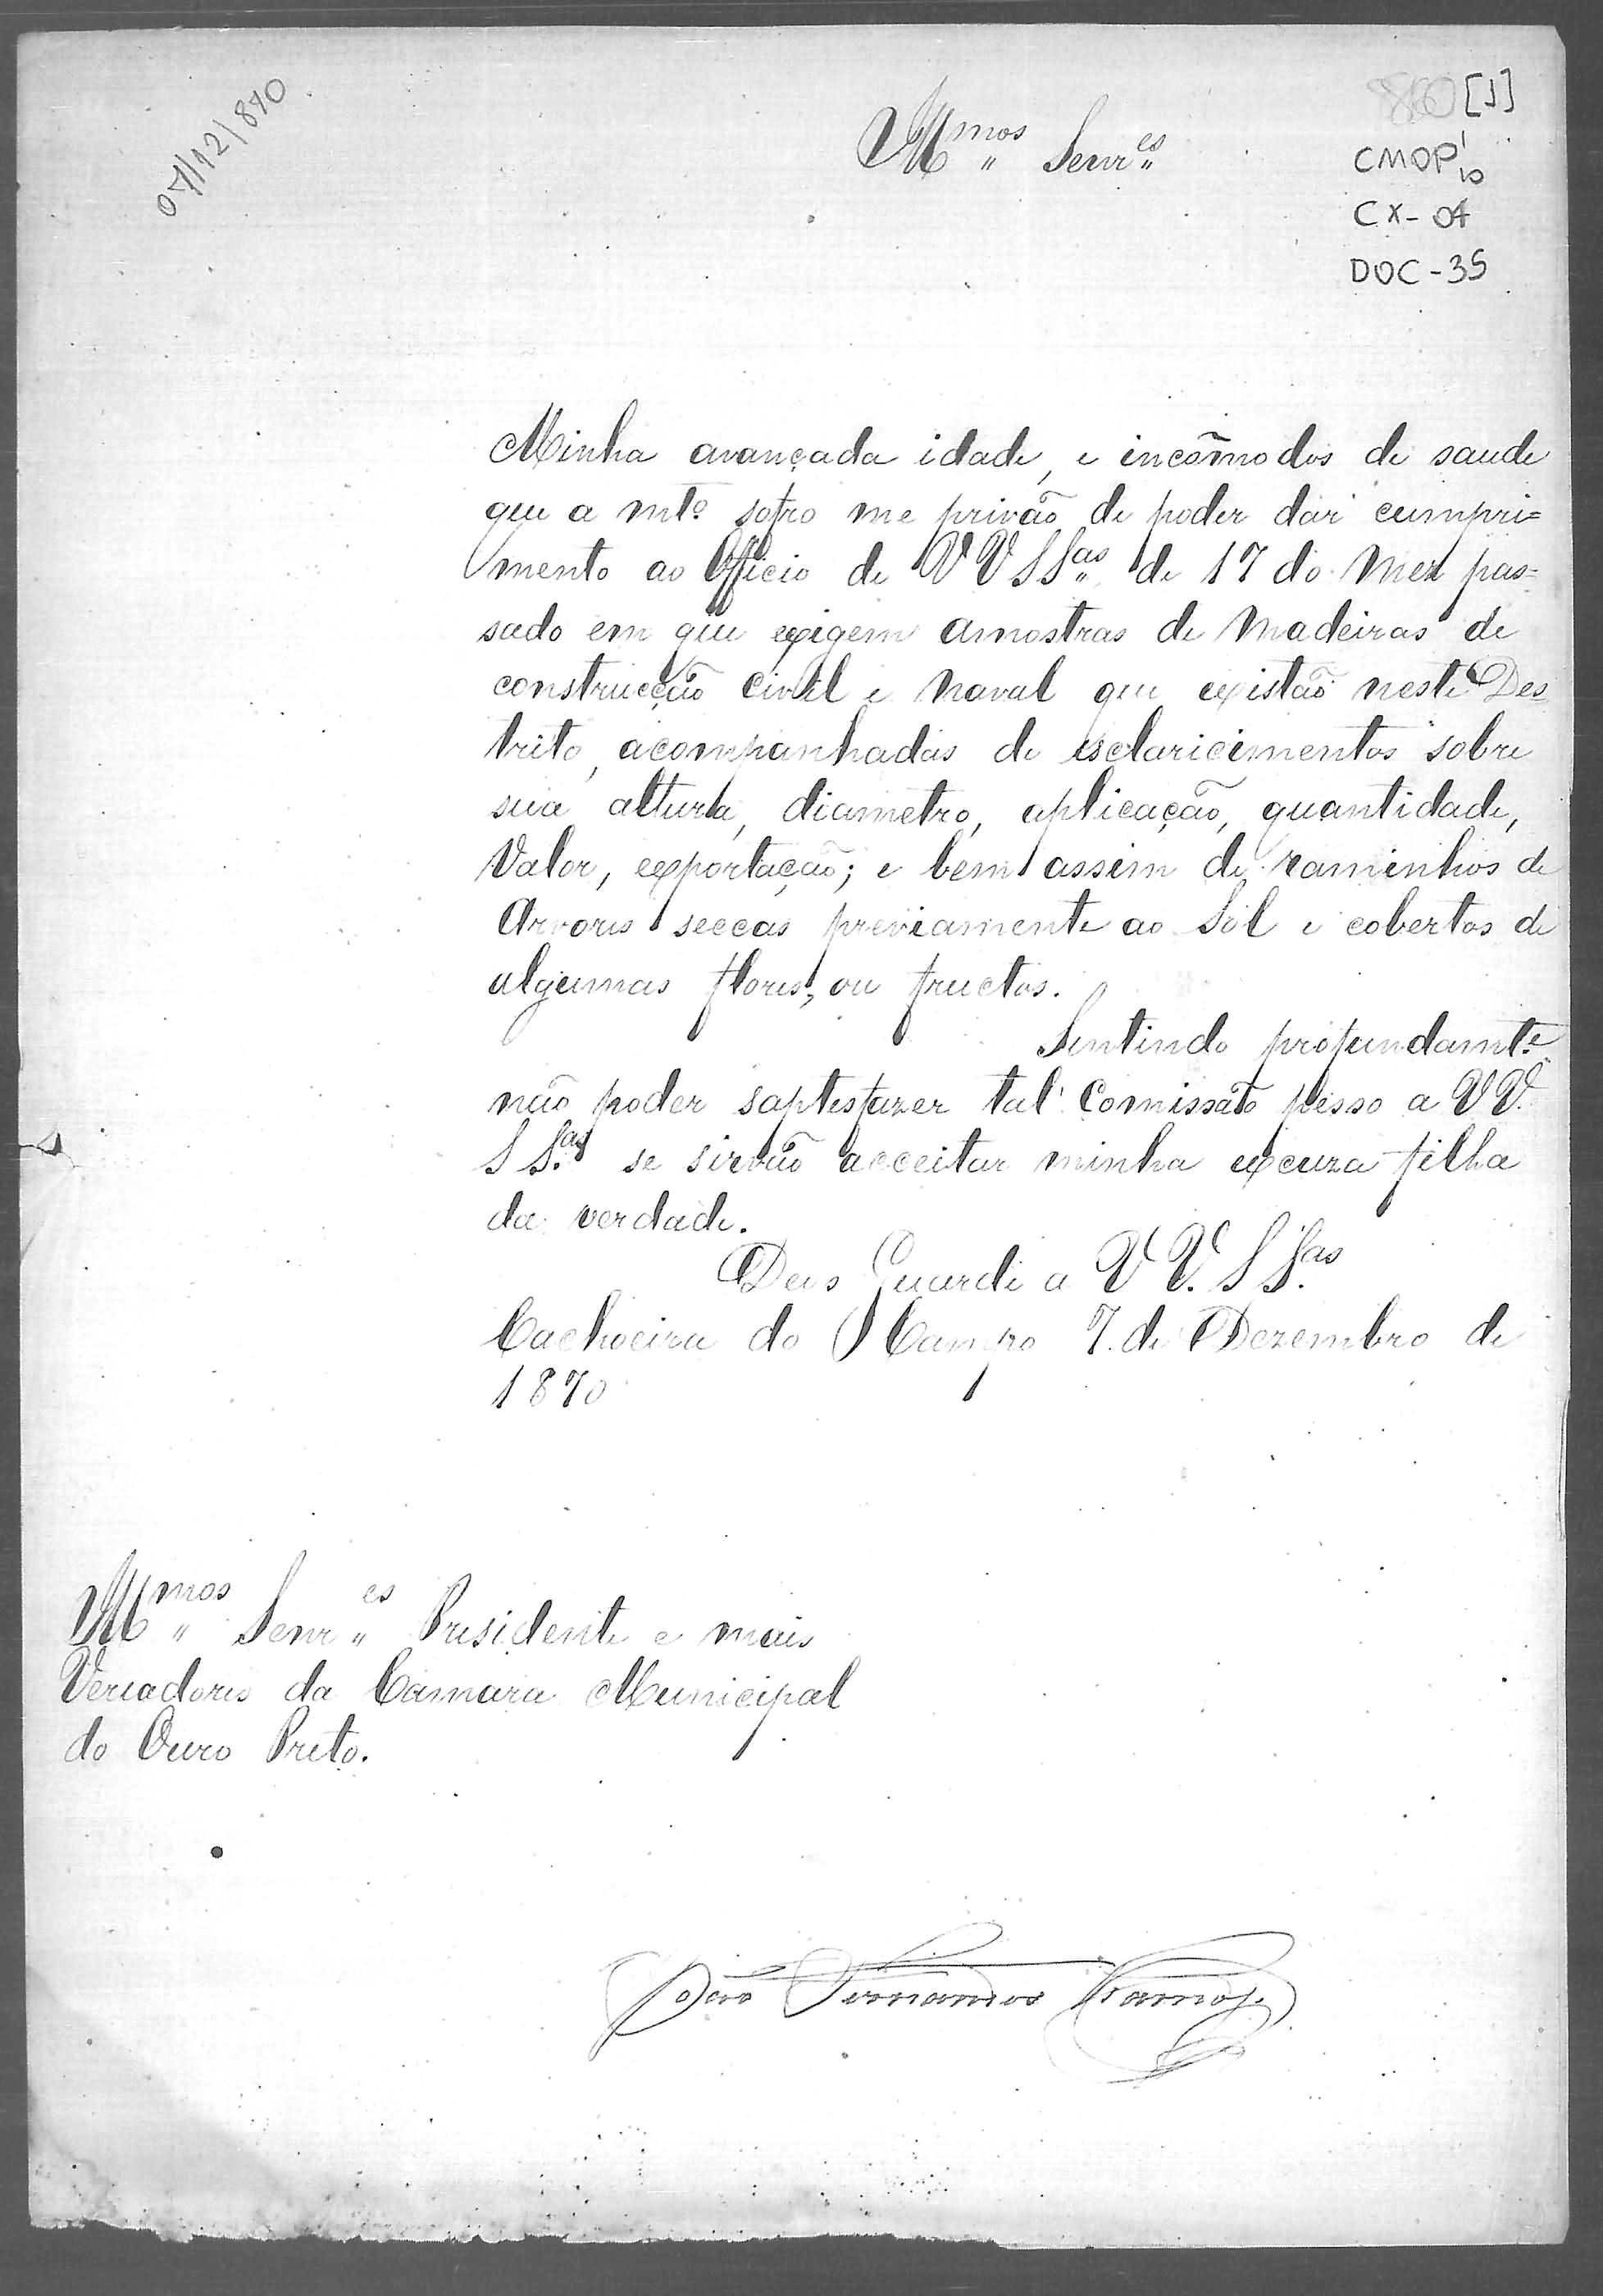 07/12/870
[1]
CMOP
CX-04
DOC-35
Illmos Senres
Minha avançada idade, e incõmodos de saude
que a mto. sofro me privão de poder dar cumpri=
mento ao Officio de VV SSas de 17 do Mez pas=
sado em que exigem amostras de Madeiras de
construcção Civil e Naval que existão neste Des
trito, acompanhadas de esclaricimentos sobre
sua altura, diametro, aplicação, quantidade,
Valor, exportação; e bem assim de raminhos de
Arvores seccas previamente ao Sol e cobertos de
algumas flores, ou fructos.
Sentindo profundamte.
não poder saptesfazer tal Comissão pesso a VV.
SSas. se sirvão acceitar minha excuza filha
da verdade.
Deus Guarde a VV. SSas.
Cachoeira do Campo 7. de Dezembro de
1870
Illmos Senres Presidente e mais
Vereadores da Camara Municipal
do Ouro Preto.
João Fernandes Ramos.